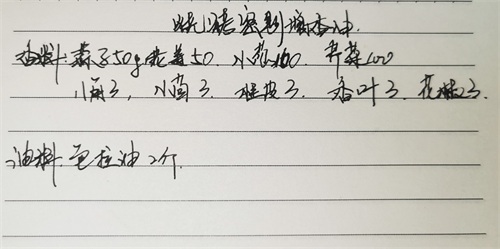 密制增香油
香料:蒜子50g 老姜50. 小葱100 芹菜100
八角3, 小茴3. 桂皮3. 香叶3. 花椒3.
油料. 色拉油2斤.